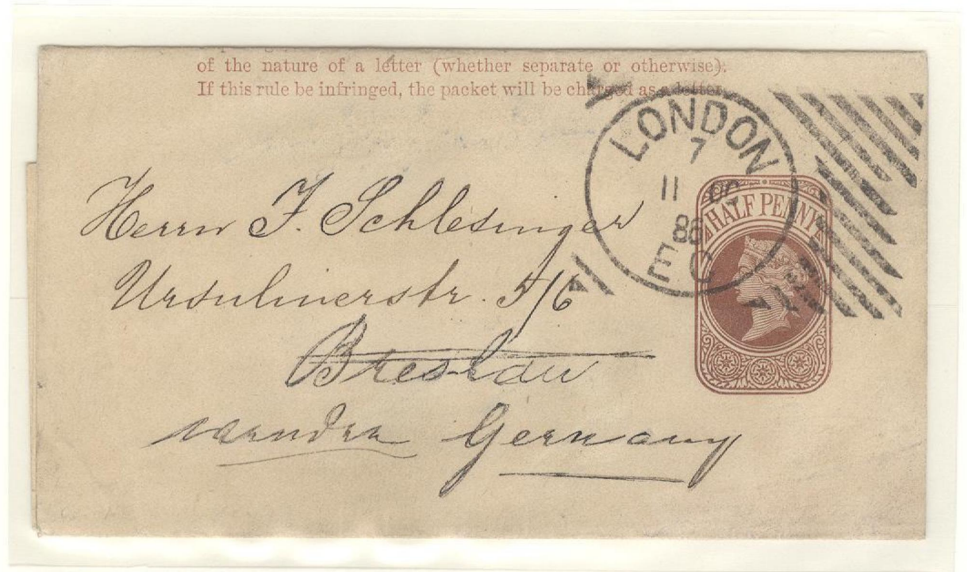 of the nature of a letter (whether separate or otherwise).
If this rule be infringed, the packet will be charged as a letter.
LONDON
7
11 OC
86
E C
HALF PENNY
Herrn F. Schlesinger
Ursulinerstr. 5/6
Breslau
Germany